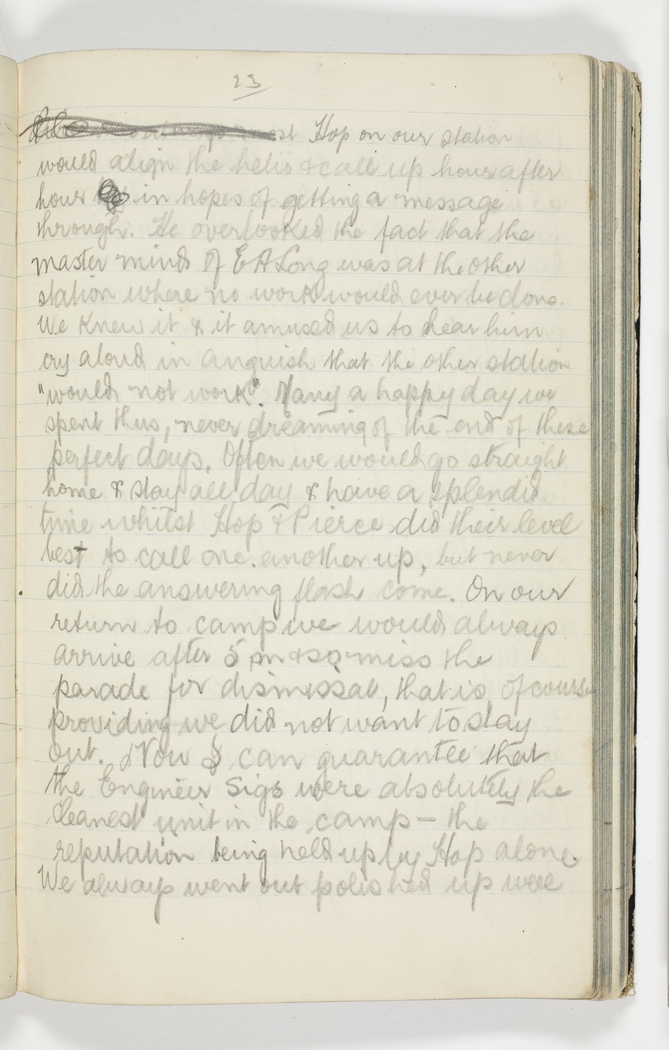 23
Hop on our station
would align the helio & call up hour after
hour in hopes of getting a message
through. He overlooked the fact that the
master mind of E A Long was at the other
station where no work would ever be done.
We knew it & it amused us to hear him
cry aloud in anguish that the other station
"would not work". Many a happy day we
spent thus, never dreaming of the end of these
perfect days. Often we would go straight
home & stay all day & have a splendid
time whilst Hop & Pierce did their level
best to call one another up, but never
did the answering flash come. On our
return to camp we would always
arrive after 5 pm & so miss the
parade for dismissal, that is, of course
providing we did not want to stay
out. Now I can guarantee that
the Engineer Sigs were absolutely the
cleanest unit in the camp – the
reputation being held up by Hop alone.
We always went out polished up well